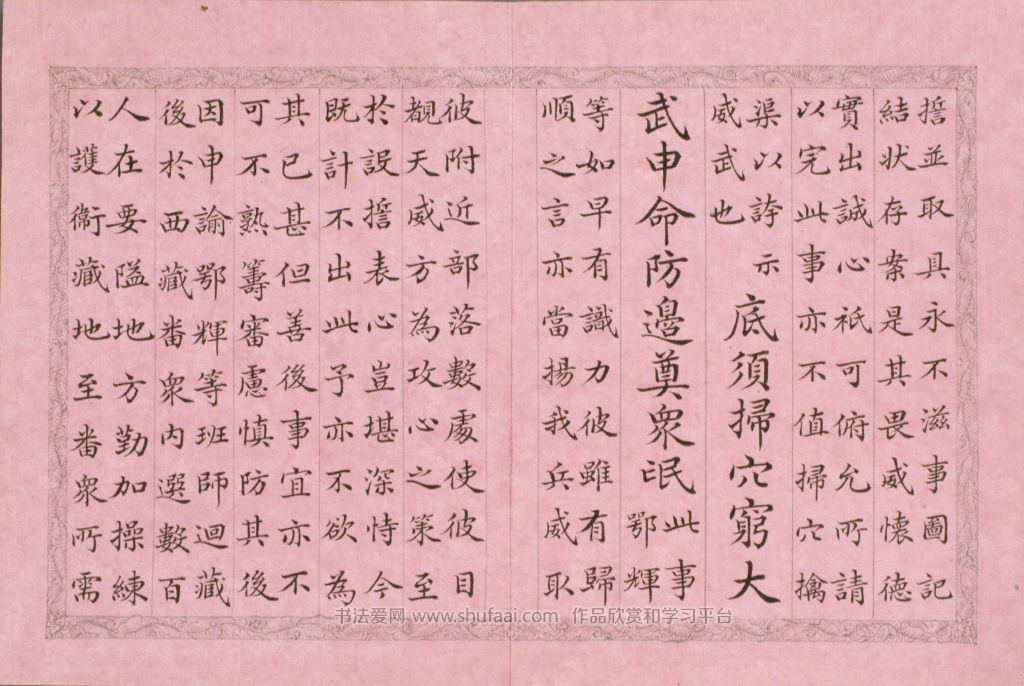 誓並取具永不滋事圖記
結狀存案是其畏威懷德
實出誠心祇可俯允所請
以完此事亦不值掃穴擒
渠以誇示
威武也
底須掃穴窮大
武申命防邊奠衆氓
此事
鄂輝
等如早有識力彼雖有歸
順之言亦當揚我兵威取
彼附近部落數處使彼目
覩天威方為攻心之策至
於設誓表心豈堪深恃今
既計不出此予亦不欲為
其已甚但善後事宜亦不
可不熟籌審慮慎防其後
因申諭鄂輝等班師迴藏
後於西藏番衆内選數百
人在要隘地方勤加操練
以護衛藏地至番衆所需
书法爱网 www.shufaai.com 作品欣赏和学习平台